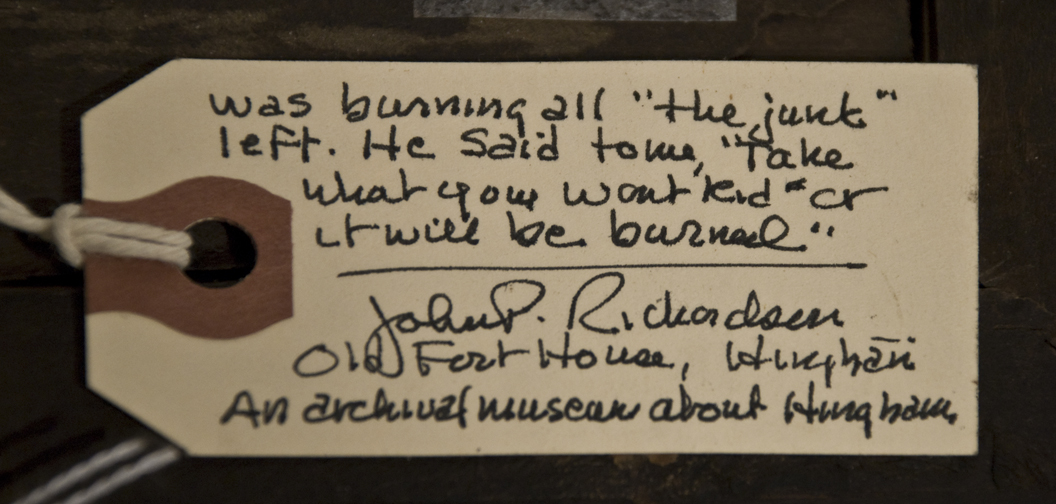 was burning all "the junk"
left. He said to me, "Take
what you want kid" or
it will be burned."
John P. Richardson
Old Fort House, Hingham
An archival museum about Hingham.